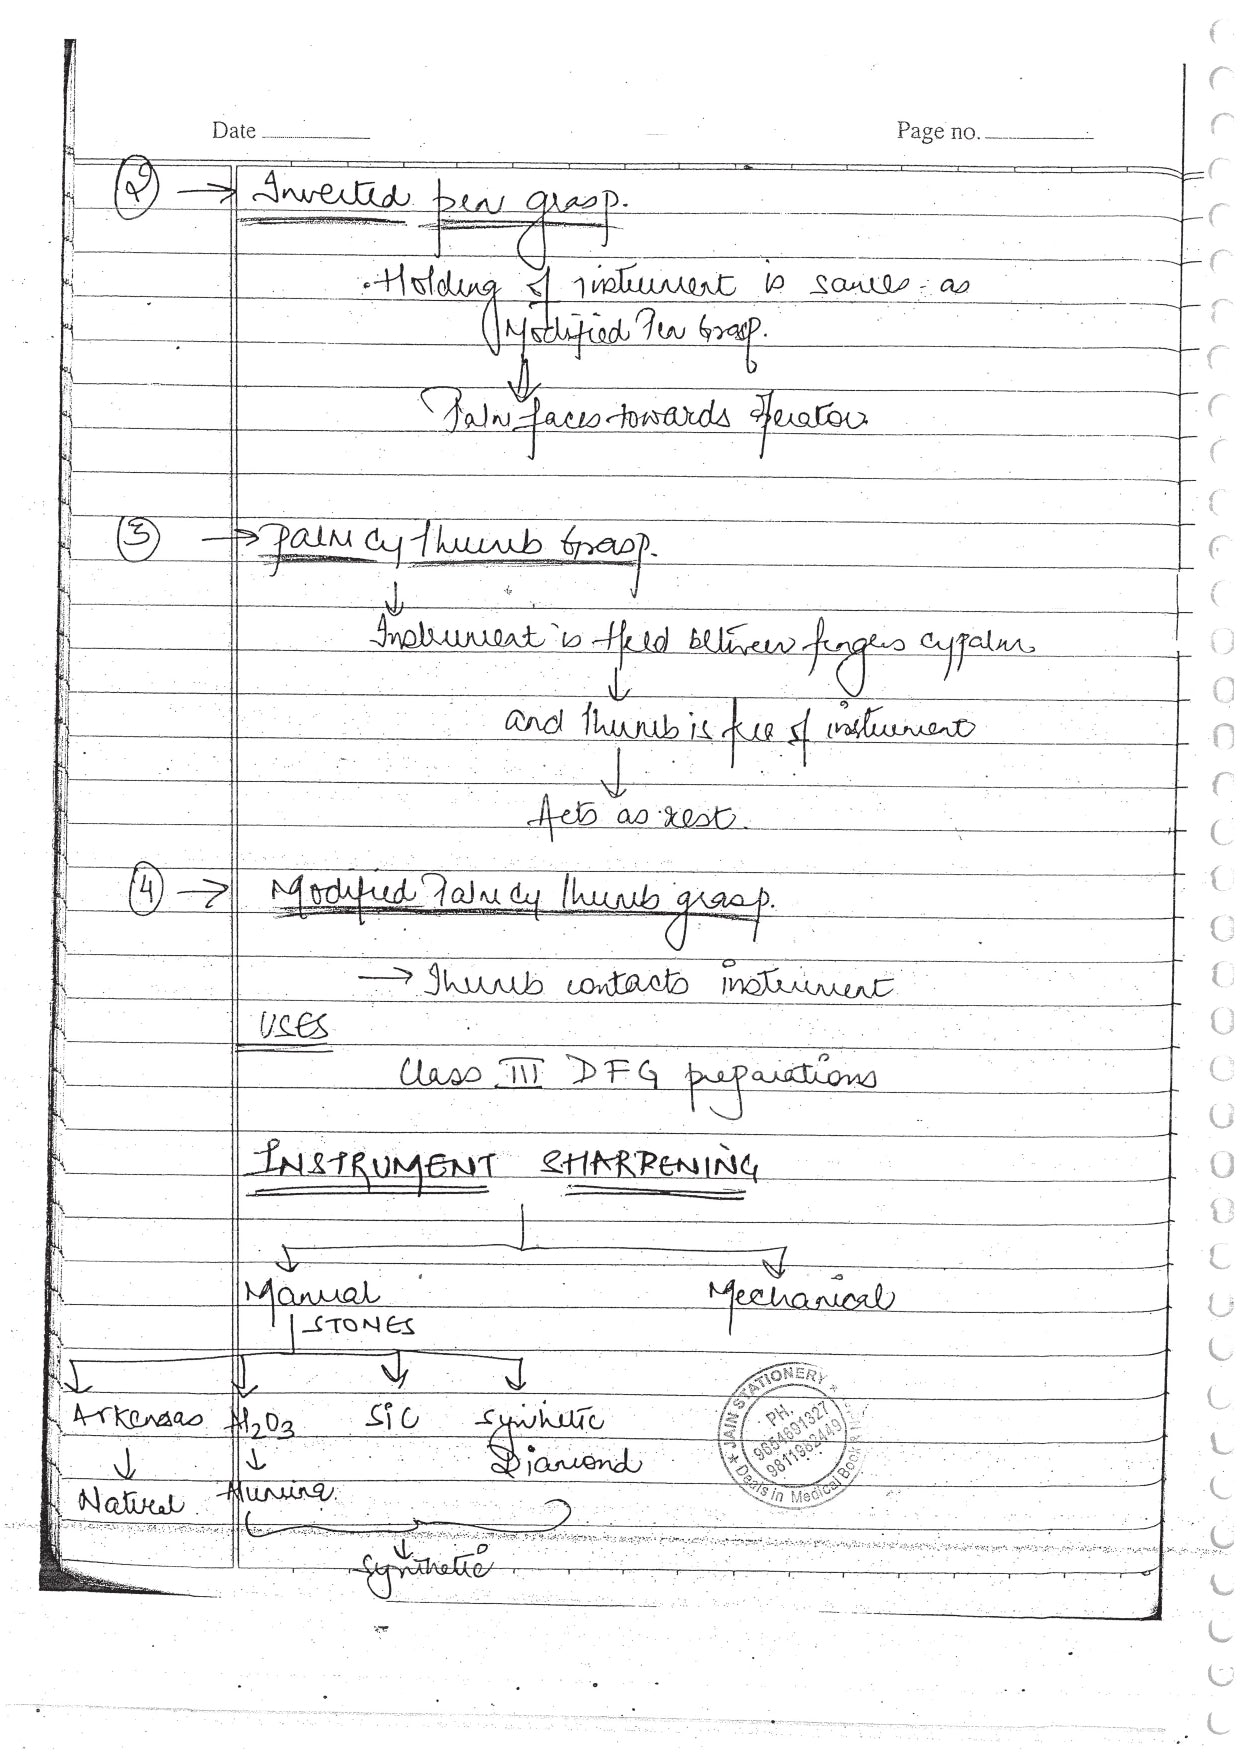 Date Page no.
2 → Inverted pen grasp.
• Holding of instrument is same as
Modified Pen Grasp.
Palm faces towards operator
3 → Palm & thumb Grasp.
Instrument is Held between fingers & palm
and thumb is free of instrument
Acts as rest.
4 → Modified Palm & thumb grasp.
→ Thumb contacts instrument
USES
Class III DFG preparations
INSTRUMENT SHARPENING
Manual Mechanical
STONES
Arkansas Al2O3 SiC Synthetic
Diamond
Natural Alumina
Synthetic
★ JAIN STATIONERY ★
PH.
9654691327
9811982449
Deals in Medical Book